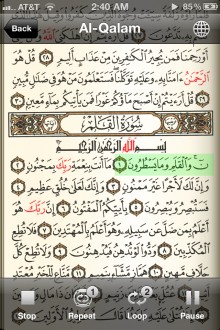 AT&T 2:40 AM 85%
Back Al-Qalam
أَوْ رَحِمَنَا فَمَن يُجِيرُ ٱلْكَٰفِرِينَ مِنْ عَذَابٍ أَلِيمٍ ٢٨ قُلْ هُوَ
ٱلرَّحْمَٰنُ ءَامَنَّا بِهِۦ وَعَلَيْهِ تَوَكَّلْنَا فَسَتَعْلَمُونَ مَنْ هُوَ فِى ضَلَٰلٍ
مُّبِينٍ ٢٩ قُلْ أَرَءَيْتُمْ إِنْ أَصْبَحَ مَآؤُكُمْ غَوْرًا فَمَن يَأْتِيكُم بِمَآءٍ مَّعِينٍ ٣٠
سُورَةُ ٱلْقَلَمِ
بِسْمِ ٱللَّهِ ٱلرَّحْمَٰنِ ٱلرَّحِيمِ
نٓ وَٱلْقَلَمِ وَمَا يَسْطُرُونَ ١ مَآ أَنتَ بِنِعْمَةِ رَبِّكَ بِمَجْنُونٍ ٢
وَإِنَّ لَكَ لَأَجْرًا غَيْرَ مَمْنُونٍ ٣ وَإِنَّكَ لَعَلَىٰ خُلُقٍ عَظِيمٍ ٤
فَسَتُبْصِرُ وَيُبْصِرُونَ ٥ بِأَييِّكُمُ ٱلْمَفْتُونُ ٦ إِنَّ رَبَّكَ هُوَ
أَعْلَمُ بِمَن ضَلَّ عَن سَبِيلِهِۦ وَهُوَ أَعْلَمُ بِٱلْمُهْتَدِينَ ٧ فَلَا تُطِعِ
ٱلْمُكَذِّبِينَ ٨ وَدُّوا۟ لَوْ تُدْهِنُ فَيُدْهِنُونَ ٩ وَلَا تُطِعْ كُلَّ
حَلَّافٍ مَّهِينٍ ١٠
1 2
Stop Repeat Loop Pause